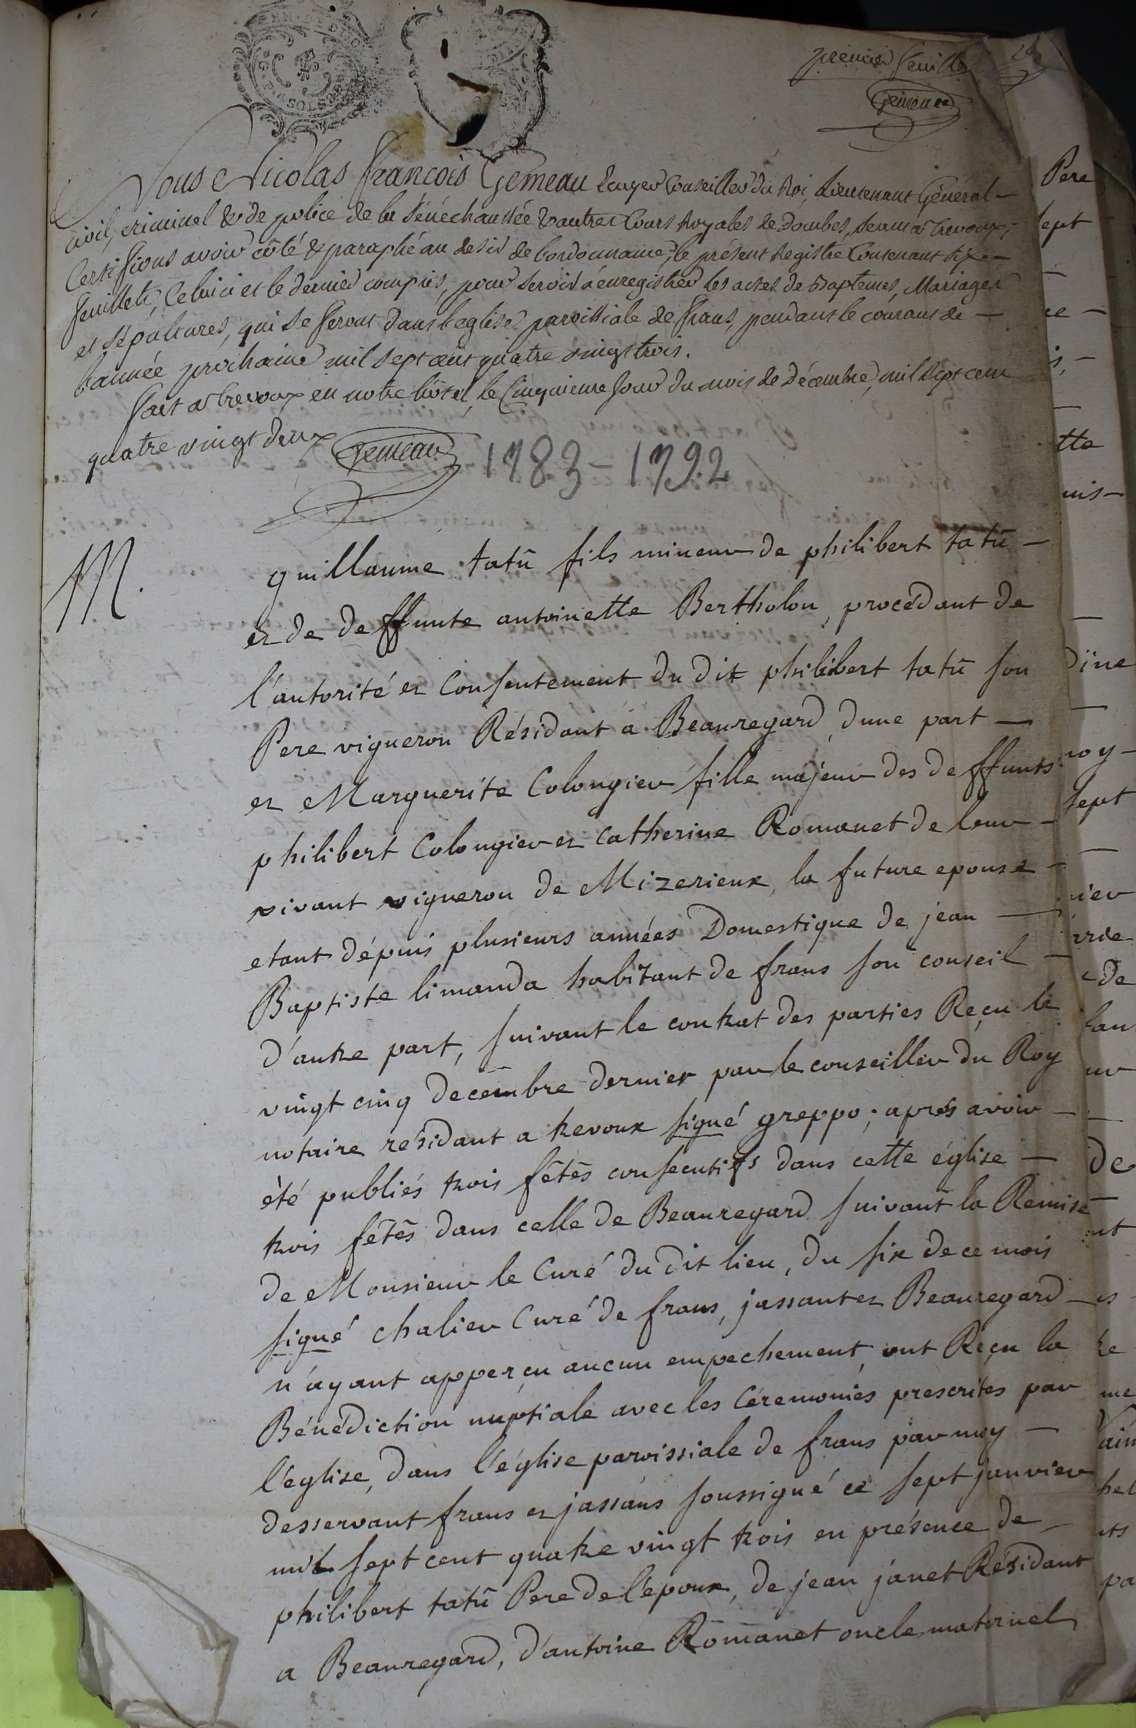 premier feuillet
Gemeau
Nous Nicolas François Gemeau Ecuyer Conseiller du Roi, Lieutenant Général
civil, criminel & de police de la Sénéchaussée & autres Cours Royales de Dombes, seant a Trevoux,
Certiffions avoir côté & paraphé au desir de l'ordonnance, le présent Registre Contenant six
feuillets, Celui ci et le dernier compris, pour servir a enregistrer les actes de Baptemes, Mariages
et sépultures, qui se feront dans l'eglise paroissiale de frans, pendant le courant de
l'année prochaine mil sept cent quatre vingt trois.
fait a trevoux en notre hôtel, le Cinquieme jour du mois de Décembre, mil sept cent
quatre vingt deux Gemeau
1783 - 1792
M.
guillaume tatû fils mineur de philibert tatû
et de deffunte antoinette Bertholon, procédant de
l'autorité et Consentement du dit philibert tatû son
Pere vigneron Résidant a Beauregard, dune part
et Marguerite Colongier fille majeur des deffunts
philibert Colongier et Catherine Romanet de leur
vivant vigneron de Mizerieux, la future epouse
etant dépuis plusieurs années Domestique de jean
Baptiste limanda habitant de frans son conseil
d'autre part, suivant le contrat des parties Reçu le
vingt cinq decembre dernier par le conseiller du Roy
notaire résidant a trevoux signé greppo; après avoir
été publiés trois fêtês consecutifs dans cette église
trois fêtês dans celle de Beauregard suivant la Remise
de Monsieur le Curé du dit lieu, du six de ce mois
signé chalier Curé de frans, jassant et Beauregard
n'ayant apperçu aucun empechement, ont Reçu la
Bénédiction nuptiale avec les Céremonies prescrites par
l'église, dans l'église paroissiale de frans par moy
desservant frans et jassans soussigné ce sept janvier
mil sept cent quatre vingt trois en présence de
philibert tatû Pere de l'époux, de jean janet Résidant
a Beauregard, d'antoine Romanet oncle maternel